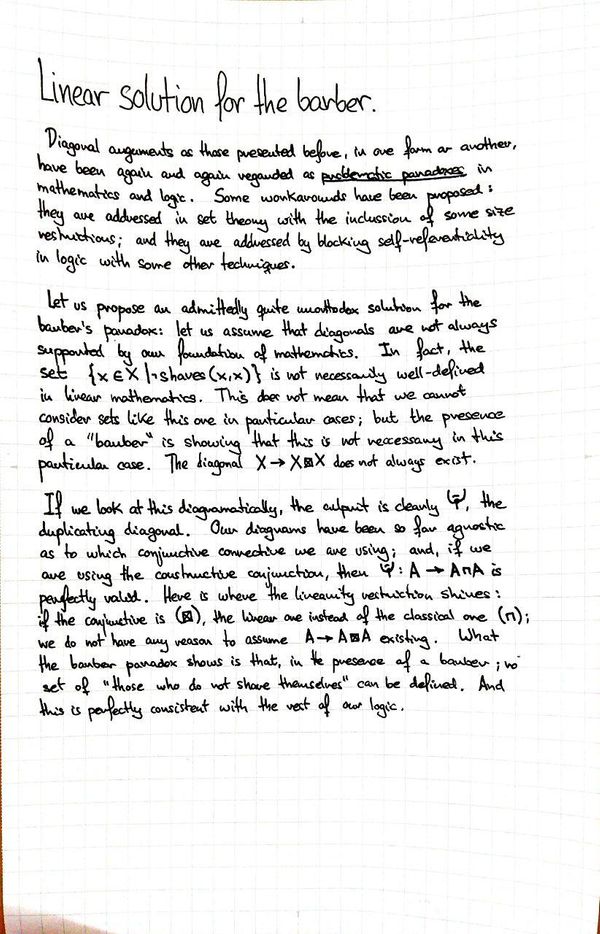 Linear solution for the barber.
Diagonal arguments as those presented before, in one form or another,
have been again and again regarded as problematic paradoxes in
mathematics and logic. Some workarounds have been proposed:
they are addressed in set theory with the inclussion of some size
restrictions; and they are addressed by blocking self-referentiality
in logic with some other techniques.
Let us propose an admittedly quite unorthodox solution for the
barber's paradox: let us assume that diagonals are not always
supported by our foundation of mathematics. In fact, the
set {x ∈ X | ¬shaves(x,x)} is not necessarily well-defined
in linear mathematics. This does not mean that we cannot
consider sets like this one in particular cases; but the presence
of a "barber" is showing that this is not necessary in this
particular case. The diagonal X → X⊠X does not always exist.
If we look at this diagramatically, the culprit is clearly Ψ, the
duplicating diagonal. Our diagrams have been so far agnostic
as to which conjunctive connective we are using; and, if we
are using the constructive conjunction, then Ψ: A → A⊓A is
perfectly valid. Here is where the linearity restriction shines:
if the conjunctive is (⊠), the linear one instead of the classical one (⊓);
we do not have any reason to assume A → A⊠A existing. What
the barber paradox shows is that, in the presence of a barber; no
set of "those who do not shave themselves" can be defined. And
this is perfectly consistent with the rest of our logic.